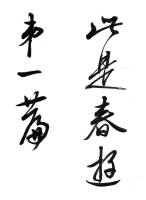 此是春遊
第一篇